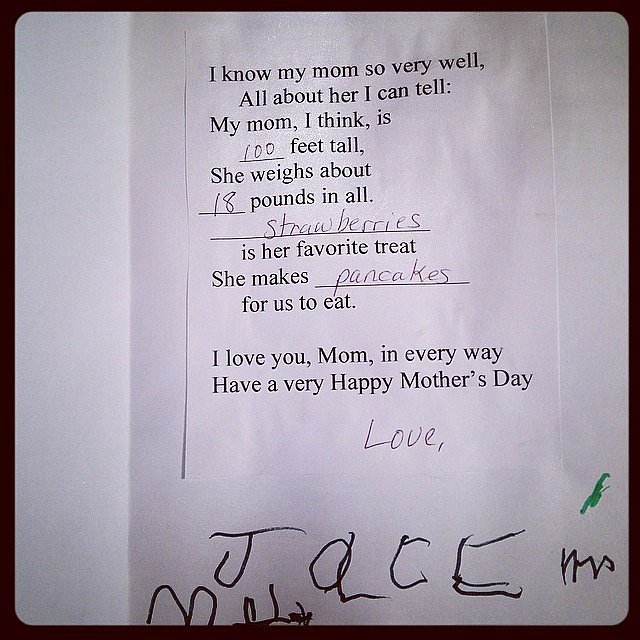 I know my mom so very well,
All about her I can tell:
My mom, I think, is
100 feet tall,
She weighs about
18 pounds in all.
strawberries
is her favorite treat
She makes pancakes
for us to eat.
I love you, Mom, in every way
Have a very Happy Mother's Day
Love,
JACE